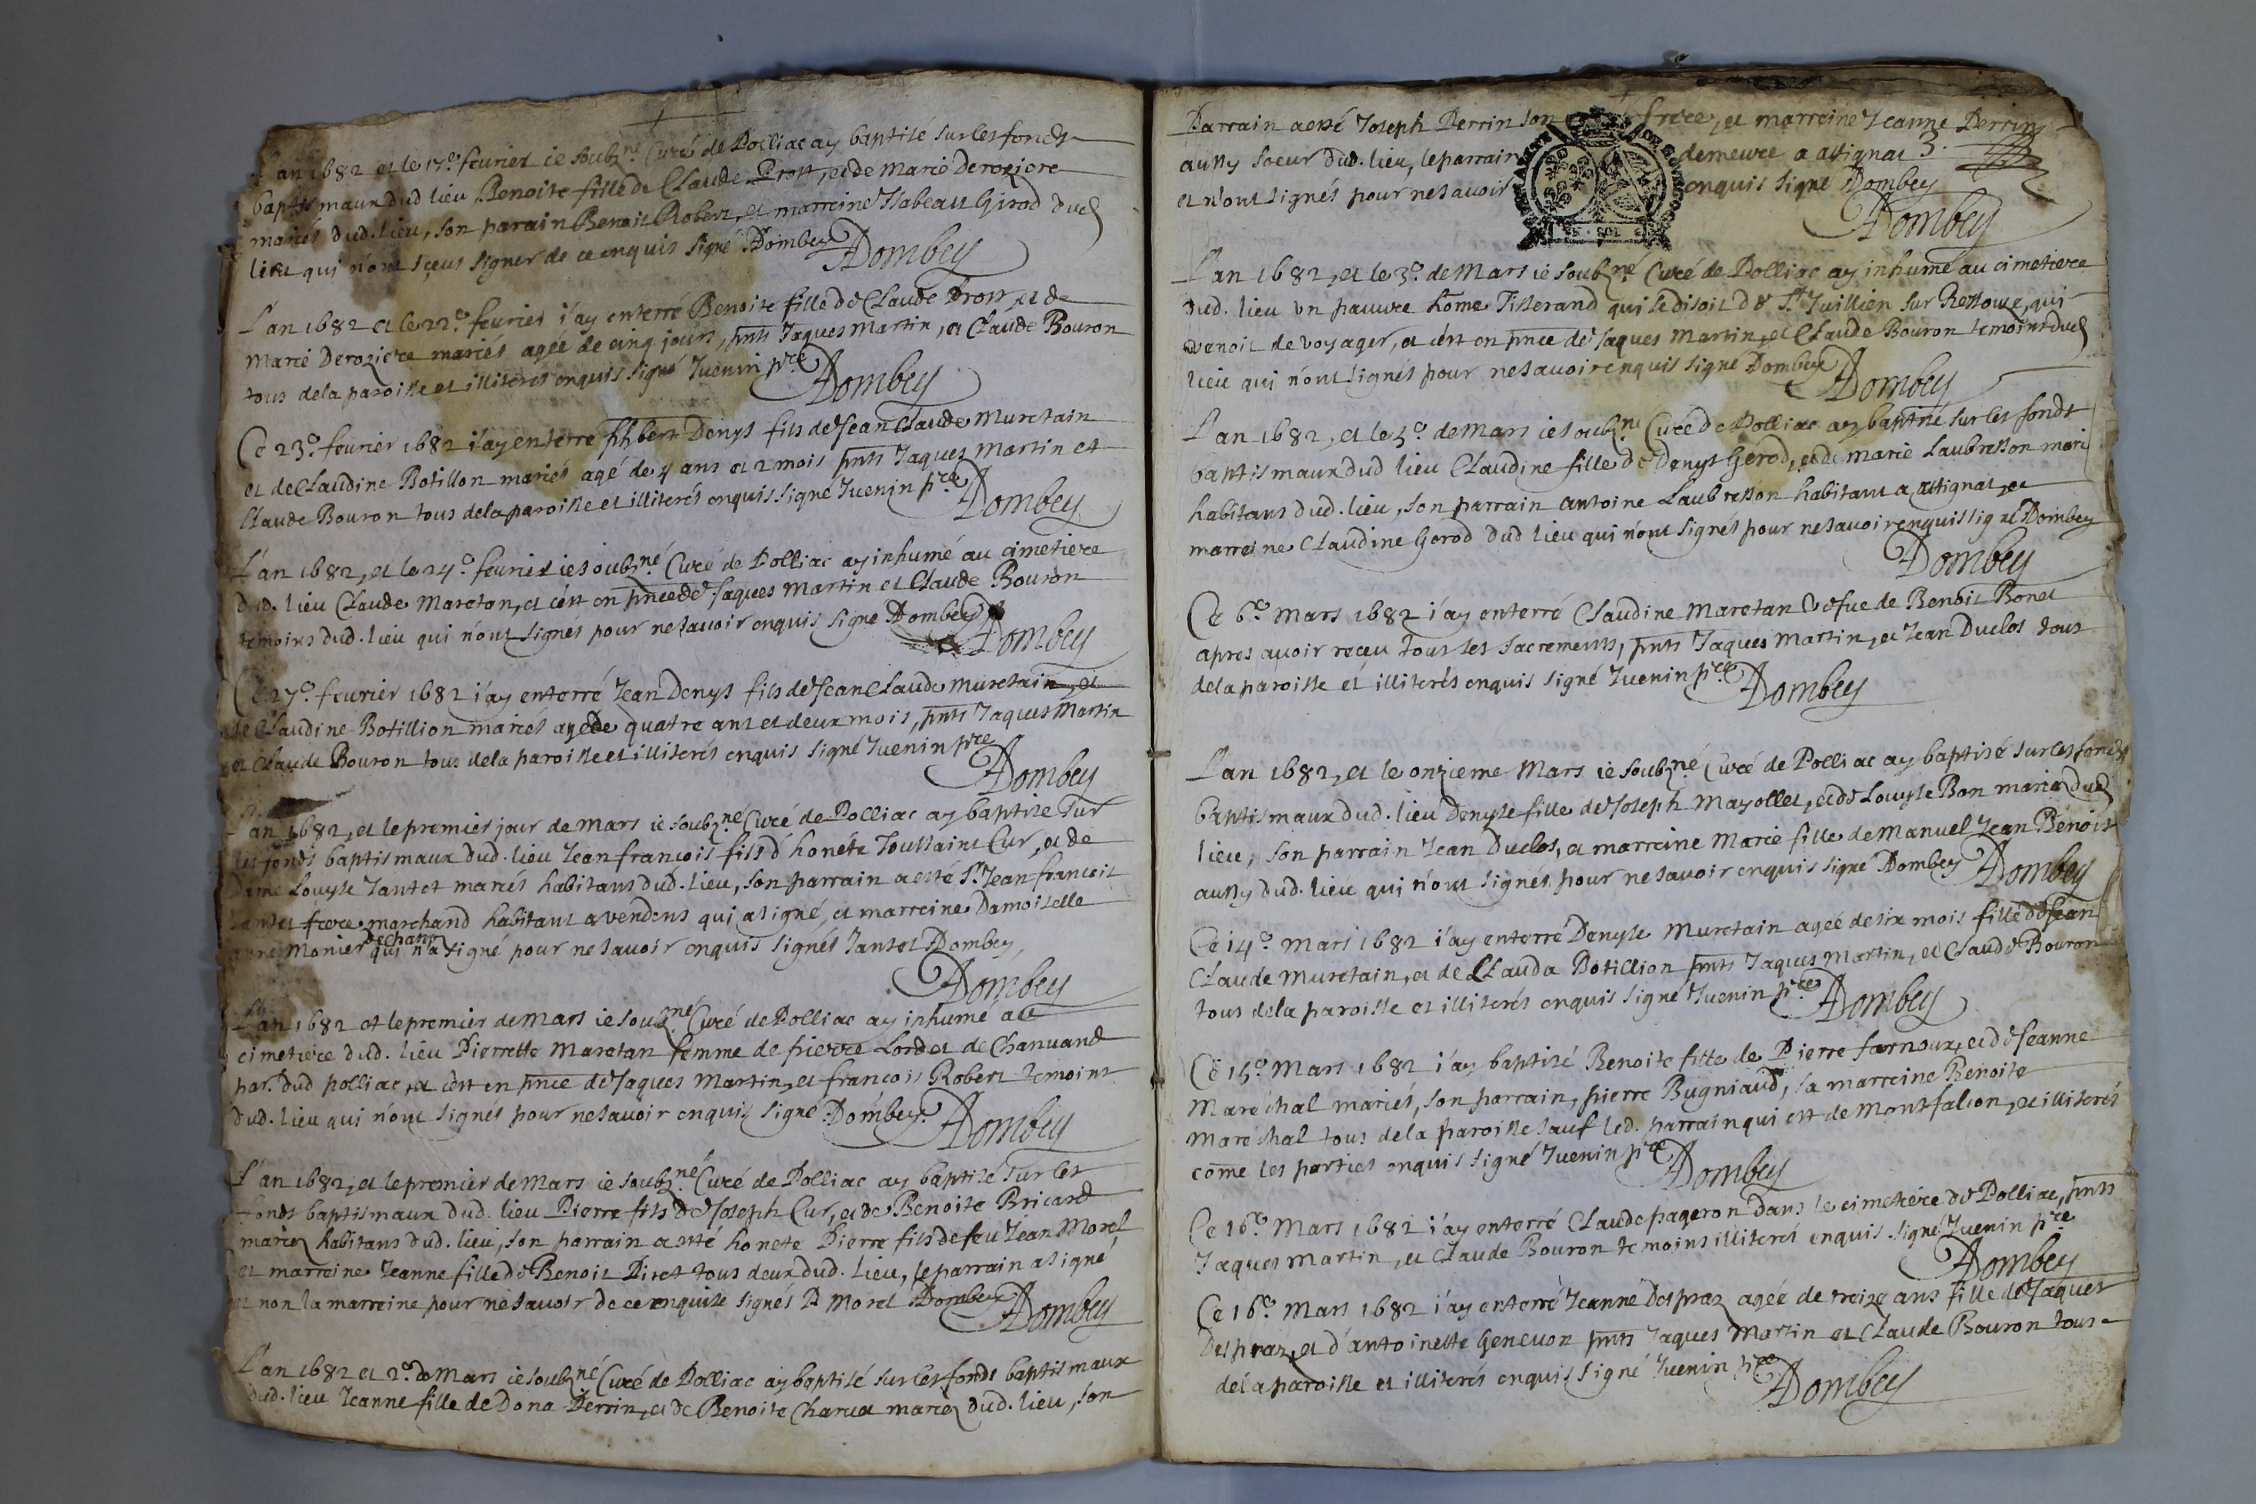 L'an 1682 et le 17e. feurier ie soubzné Curé de Polliac ay baptisé sur les fonds
baptismaux dud lieu Benoite fille de Claude Prost, et de Marie Deroziere
mariés dud. lieu, son parain Benoit Robert, et marreine Isabeau Girod dud
lieu qui n'ont sçeus signer de ce enquis signé Dombey
Dombey
L'an 1682 et le 22e. feurier i'ay enterré Benoite fille de Claude Prost, et de
Marie Deroziere mariés agée de cinq jours, pnts Jaques Martin, et Claude Bouron
tous de la paroisse et illiterés enquis signé Juenin pre
Dombey
Ce 23e. feurier 1682 i'ay enterré phbert Denys fils de Jean Claude Muretain
et de Claudine Botillon mariés agé de 4 ans et 2 mois pnts Jaques Martin et
Claude Bouron tous de la paroisse et illiterés enquis signé Juenin pre
Dombey
L'an 1682, et le 24e. feurier ie soubzné Curé de Polliac ay inhumé au cimetiere
dud. lieu Claude Mareton, et c'est en pnce de Jaques Martin et Claude Bouron
temoins dud. lieu qui n'ont signés pour ne sauoir enquis signé Dombey
Dombey
Ce 27e. feurier 1682 i'ay enterré Jean Denys fils de Jean Claude Muretain, et
de Claudine Botillion mariés agé de quatre ans et deux mois, pnts Jaques Martin
et Claude Bouron tous de la paroisse et illiterés enquis signé Juenin pre
Dombey
L'an 1682, et le premier jour de mars ie soubzné Curé de Polliac ay baptisé sur
les fonds baptismaux dud. lieu Jean francois fils d'honéte Toussaint Cur, et de
Dame Louyse Jantet mariés habitans dud. lieu, son parrain a esté Sr. Jean francois
Jantet frere marchand habitant a vendens qui a signé, et marreine Damoiselle
Monier qui n'a signé pour ne sauoir enquis signés Jantet Dombey,
Dombey
L'an 1682 et le premier de mars ie soubzné Curé de Polliac ay inhumé au
cimetiere dud. lieu Pierrette Maretan femme de pierre Lordet de Chanuand
par. dud polliac, et c'est en pnce de Jaques Martin, et francois Robert temoins
dud. lieu qui n'ont signés pour ne sauoir enquis signé Dombey.
Dombey
L'an 1682, et le premier de Mars ie soubzné Curé de Polliac ay baptisé sur les
fonds baptismaux dud. lieu Pierre fils de Joseph Cur, et de Benoite Bricard
mariez habitans dud. lieu, son parrain a esté honete Pierre fils de feu Jean Morel
et marreine Jeanne fille de Benoit Piret tous deux dud. lieu, le parrain a signé
et non la marreine pour ne sauoir de ce enquise signés P Morel Dombey
Dombey
L'an 1682 et 2e. de Mars ie soubzné Curé de Polliac ay baptisé sur les fonds baptismaux
dud. lieu Jeanne fille de Dona Perrin, et de Benoite Charuet mariez dud. lieu, son
Parrain a esté Joseph Perrin son frere, et marreine Jeanne Perrin
aussy soeur dud. lieu, le parrain demeure a attignat 3.
et n'ont signés pour ne sauoir enquis signé Dombey
Dombey
L'an 1682, et le 3e. de Mars ie soubzné Curé de Polliac ay inhumé au cimetiere
dud. lieu un pauure home Tisserand qui se disoit de St. Juillien sur Ressouze, qui
venoit de voyager, et c'est en pnce de Jaques Martin, et Claude Bouron temoins dud
lieu qui n'ont signés pour ne sauoir enquis signé Dombey
Dombey
L'an 1682, et le 5e. de Mars ie soubzné Curé de Polliac ay baptisé sur les fonds
baptismaux dud lieu Claudine fille de Denys Gerod, et de marie Laubresson mariés
habitans dud. lieu, son parrain antoine Laubresson habitant a attignat, et
marreine Claudine Gerod dud lieu qui n'ont signés pour ne sauoir enquis signé Dombey
Dombey
Ce 6e. Mars 1682 i'ay enterré Claudine Maretan Vefue de Benoit Bonet
apres auoir reçeu tous les sacrements, pnts Jaques Martin, et Jean Duclos tous
de la paroisse et illiterés enquis signé Juenin pre
Dombey
L'an 1682, et le onzieme Mars ie soubzné Curé de Polliac ay baptisé sur les fonds
baptismaux dud. lieu Denyse fille de Joseph Mayollet, et de Louyse Bon mariez dud
lieu, son parrain Jean Duclos, et marreine Marie fille de Manuel Jean Benoist
aussy dud. lieu qui n'ont signés pour ne sauoir enquis signé Dombey
Dombey
Ce 14e. Mars 1682 i'ay enterré Denyse Muretain ageé de six mois fille de Jean
Claude Muretain, et de Clauda Botillion pnts Jaques Martin, et Claude Bouron
tous de la paroisse et illiterés enquis signé Juenin pre
Dombey
Ce 15e. Mars 1682 i'ay baptisé Benoite fille de Pierre farnoux, et de Jeanne
Maréchal mariés, son parrain, pierre Bugniaud, sa marreine Benoite
Maréchal tous de la paroisse sauf led. parrain qui est de Montfalcon, et illiterés
come les parties enquis signé Juenin pre
Dombey
Ce 16e. Mars 1682 i'ay enterré Claude pageron dans le cimetiere de Polliac, pnts
Jaques Martin, et Claude Bouron temoins illiterés enquis signé Juenin pre
Dombey
Ce 16e. Mars 1682 i'ay enterré Jeanne Despraz agée de treize ans fille de Jaques
Despraz, et d'antoinette Genevon pnts Jaques Martin et Claude Bouron tous
de la paroisse et illiterés enquis signé Juenin pre
Dombey